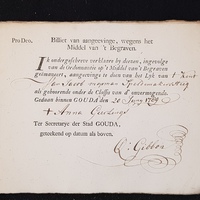 Pro Deo.
Billet van aangeevinge, wegens het
Middel van 't Begraven.
Ik ondergeschreven verklaere by deezen, ingevolge
van de Ordonnantie op 't Middel van 't Begraven
geëmaneert, aangeevinge te doen van het Lyk van 't kint
van Jacob
als gehoorende onder de Classis van d' onvermogende.
Gedaan binnen GOUDA den 20 Juny
Anna
Ter Secretarye der Stad GOUDA,
geteekend op datum als boven.
Gibbon